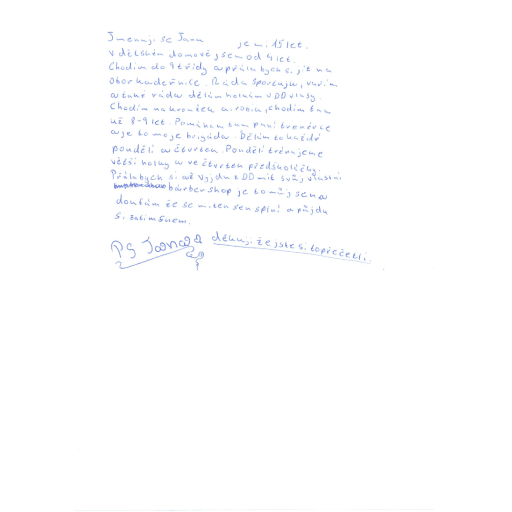 Jmenuji se Jana je mi 15 let.
V dětském domově jsem od 4 let.
Chodím do 9 třídy a přála bych si jít na
obor kadeřnice. Ráda sportuju, vařím
a také ráda dělám holkám v DD vlasy.
Chodím na kroužek aerobiku, chodím tam
už 8-9 let. Pomáhám tam paní trenérce
a je to moje brigáda. Dělám to každé
pondělí a čtvrtek. Pondělí trénujeme
větší holky a ve čtvrtek předškoláčky.
Přála bych si až vyjdu z DD mít svůj vlastní
barber shop je to můj sen a
doufám že se mi ten sen splní a půjdu
si za tím snem.
PS Jana děkuji že jste si to přečetli.